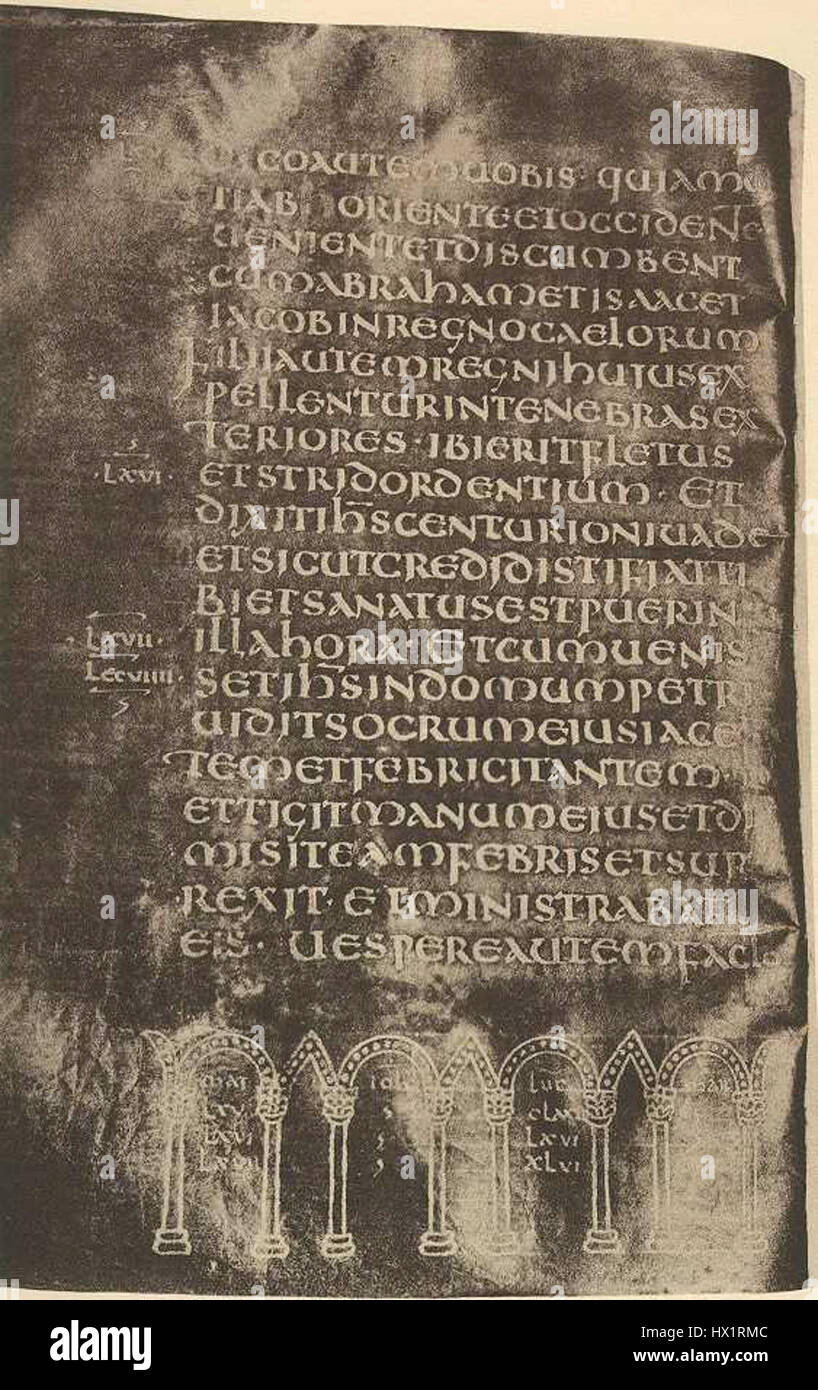 CO AUTEM UOBIS · QUIA MU
AB ORIENTE ET OCCIDENTE
UENIENT ET DISCUMBENT
CUM ABRAHAM ET ISAAC ET
IACOB IN REGNO CAELORUM
FILII AUTEM REGNI HUIUS EX
PELLENTUR IN TENEBRAS EX
TERIORES · IBI ERIT FLETUS
·LXVI· ET STRIDOR DENTIUM · ET
DIXIT IHS CENTURIONI UADE
ET SICUT CREDIDISTI FIAT TI
BI ET SANATUS EST PUER IN
·LXVII· ILLA HORA · ET CUM UENIS
SET IHS IN DOMUM PETRI
UIDIT SOCRUM EIUS IACE
TEM ET FEBRICITANTEM ·
ET TIGIT MANUM EIUS ET DI
MISIT EAM FEBRIS ET SUR
REXIT · ET MINISTRABAT
EIS · UESPERE AUTEM FAC
MAT IOH LUC
LXVI LXVI
LXVII XLVI
alamy
alamy
Image ID: HX1RMC
www.alamy.com